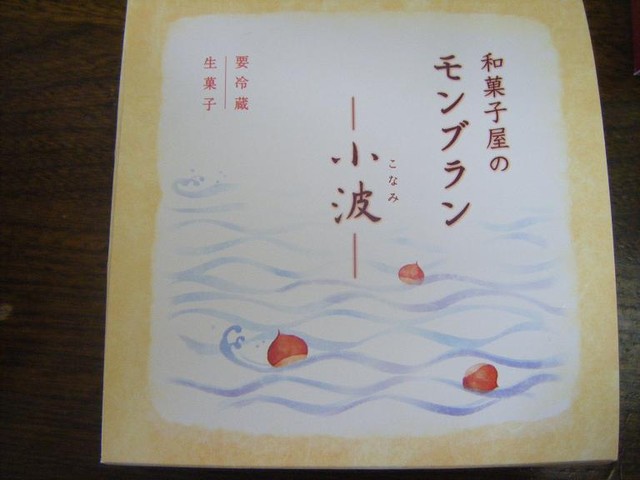 和菓子屋の
モンブラン
小波
こなみ
要冷蔵
生菓子